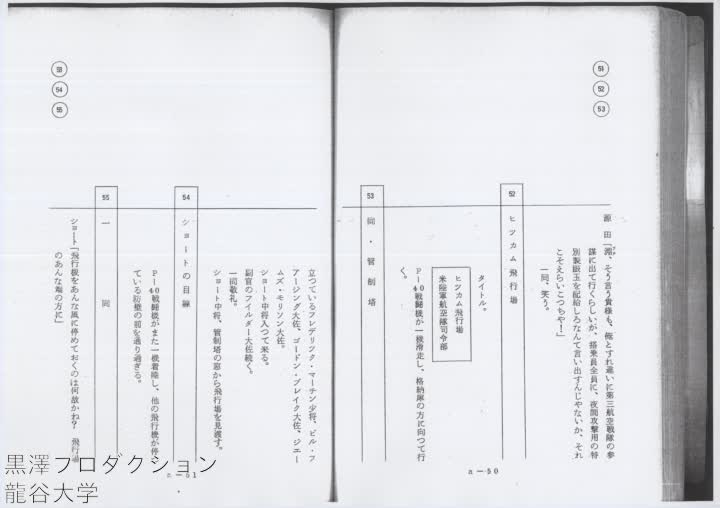 51
52
53
源田「淵、そう言う貴様も、俺とすれ違いに第三航空戦隊の参
謀に出て行くらしいが、搭乗員全員に、夜間攻撃用の特
別製眼玉を配給しろなんて言い出すんじゃないか、それ
こそえらいこつちや!」
一同、笑う。
52 ヒツカム飛行場
タイトル。
ヒツカム飛行場
米陸軍航空隊司令部
P—40戦闘機が一機滑走し、格納庫の方に向つて行
く。
53 同・管制塔
a—50
53
54
55
立つているフレデリツク・マーチン少将、ビル・フ
アージング大佐、ゴードン・ブレイク大佐、ジエー
ムズ・モリソン大佐。
ショート中将入つて来る。
副官のフイルダー大佐続く。
一同敬礼。
ショート中将、管制塔の窓から飛行場を見渡す。
54 ショートの目線
P—40戦闘機がまた一機着陸し、他の飛行機が停つ
ている前を通り過ぎる。
55 一同
ショート「飛行機をあんな風に停めておくのは何故かね? 飛行場
のあんな端の方に」
a—51
黒澤プロダクション
龍谷大学